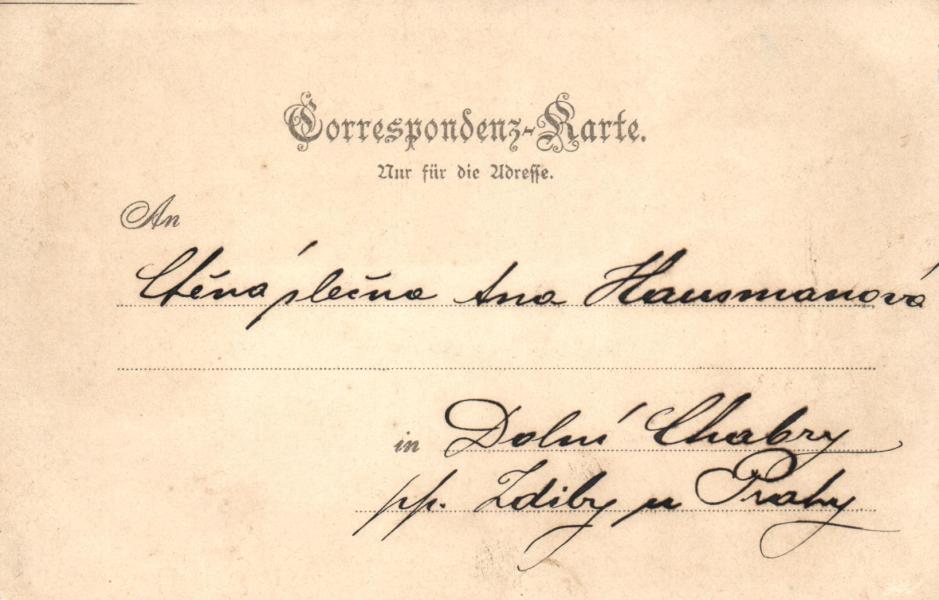 Correspondenz-Karte.
Nur für die Adresse.
An
Ctěná slečna Ana Hausmanová
in Dolní Chabry
pp. Zdiby u Prahy